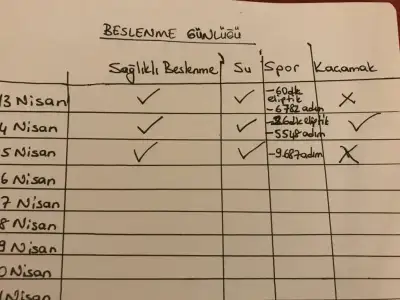 BESLENME GÜNLÜĞÜ
Sağlıklı Beslenme Su Spor Kacamak
3 Nisan ✓ ✓ -60dk eliptik -6782 adım X
4 Nisan ✓ ✓ dk eliptik -5548 adım ✓
5 Nisan ✓ ✓ -9.687 adım X
6 Nisan
7 Nisan
8 Nisan
9 Nisan
0 Nisan
Nisan